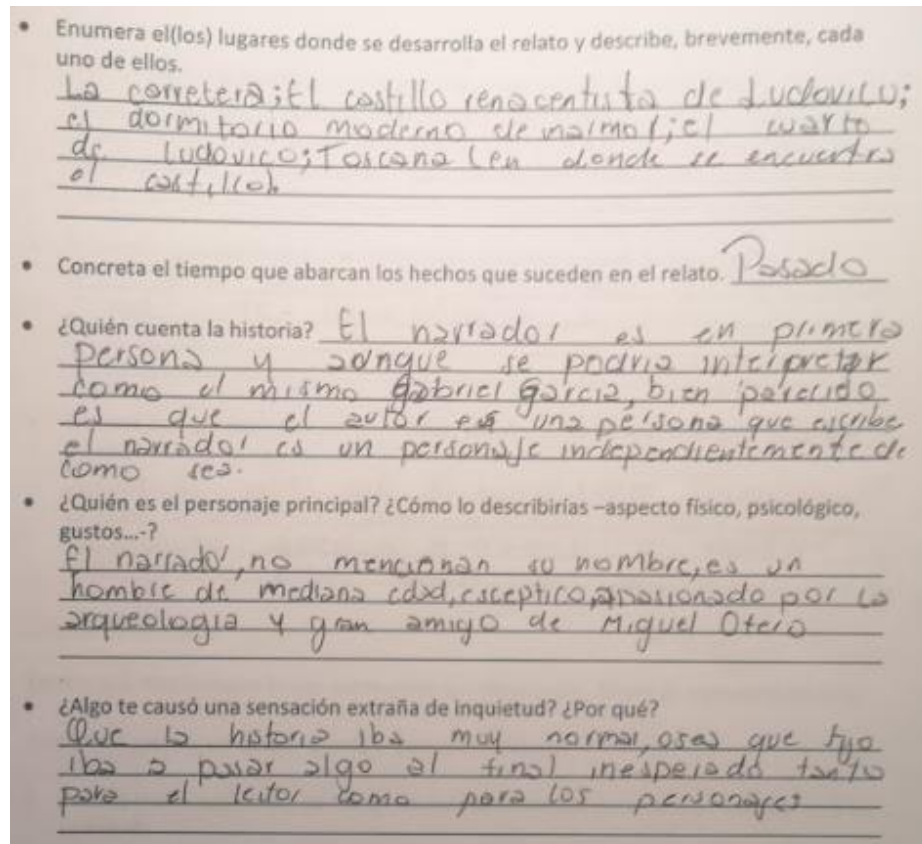 • Enumera el(los) lugares donde se desarrolla el relato y describe, brevemente, cada
uno de ellos.
La carretera; El castillo renacentista de Ludovico;
el dormitorio moderno de marmol; el cuarto
de Ludovico; Toscana (en donde se encuentra
el castillo).
• Concreta el tiempo que abarcan los hechos que suceden en el relato. Pasado
• ¿Quién cuenta la historia? El narrador es en primera
persona y aunque se podria interpretar
como el mismo Gabriel Garcia, bien parecido
es que el autor es una persona que escribe
el narrador es un personaje independientemente de
como sea.
• ¿Quién es el personaje principal? ¿Cómo lo describirías –aspecto físico, psicológico,
gustos...-?
El narrador, no mencionan su nombre, es un
hombre de mediana edad, esceptico, apasionado por la
arqueologia y gran amigo de Miguel Otero
• ¿Algo te causó una sensación extraña de inquietud? ¿Por qué?
Que la historia iba muy normal, osea que
iba a pasar algo al final inesperado tanto
para el leitor como para los personajes